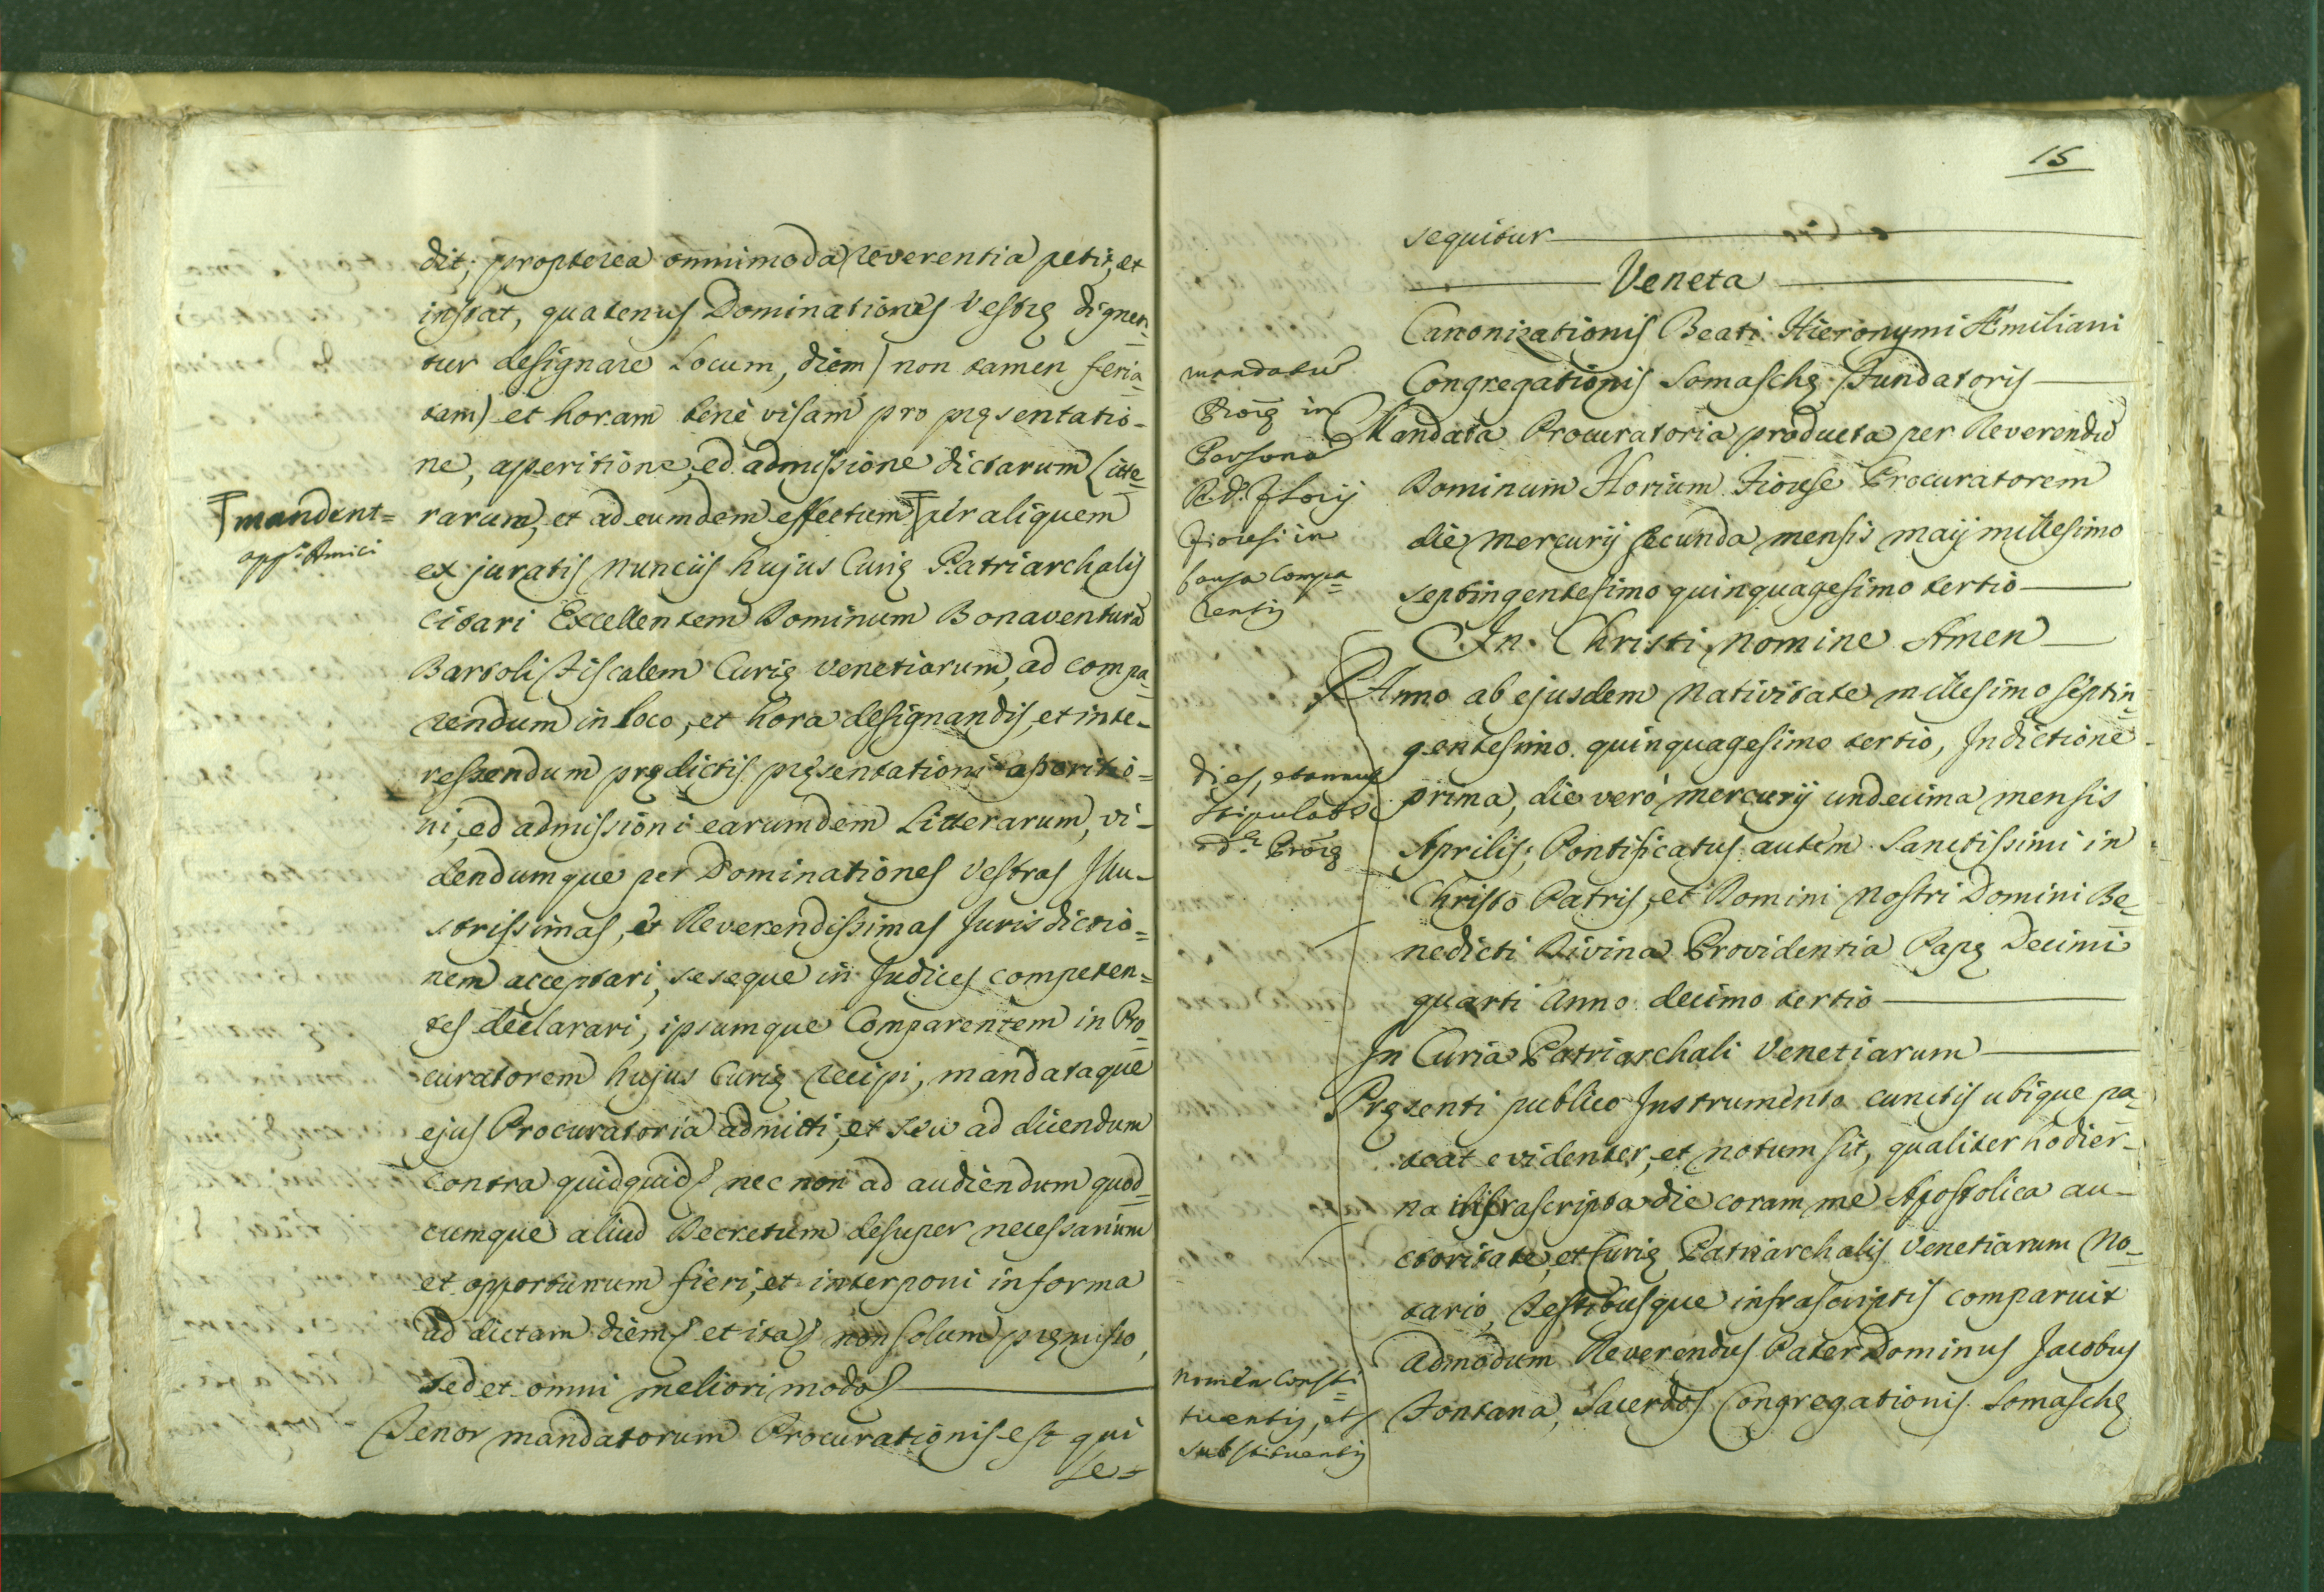 dit; propterea omnimoda reverentia petit, et
instat, quatenus Dominationes Vestrę dignen=
tur designare Locum, diem (non tamen feria=
tam) et horam benè visam pro pręsentatio-
ne, aperitione, ed admissione dictarum Litte=
rarum, et ad eumdem effectum per aliquem
mandent=
opp.s Amici
ex juratis nunciis hujus Curię Patriarchalis
citari Excellentem Dominum Bonaventurā
Bartoli Fiscalem Curię Venetiarum, ad compa=
rendum in loco, et hora designandis, et inte-
ressendum prędictis pręsentationi aperitio=
ni, ed admissioni earumdem Litterarum, vi-
dendumque per Dominationes Vestras Illu-
strissimas, et Reverendissimas Jurisdictio=
nem acceptari, seseque in Judices competen=
tes declarari, ipsumque Comparentem in Pro=
curatorem hujus Curię recipi, mandataque
ejus Procuratoria admitti, et seu ad dicendum
contra quidquid nec non ad audiendum quod=
cumque aliud Decretum desuper necessarium
et opportunum fieri, et interponi in forma
ad dictam diem et ita non solum pręmisso,
sed et omni meliori modo
Tenor mandatorum Procurationis est qui
se=
15
sequitur
Veneta
Canonizationis Beati Hieronymi Æmiliani
Congregationis Somaschę Fundatoris
mandatū
Procę in
Persona
R. D. Florij
Fioresi in
causa Compa=
rentis
Mandata Procuratoria producta per Reverendū
Dominum Florium Fiorese Procuratorem
die Mercurij secunda mensis maij millesimo
septingentesimo quinquagesimo tertio
In Christi nomine Amen
Anno ab ejusdem Nativitate millesimo septin=
gentesimo quinquagesimo tertio, Indictione
dies, et annus
stipulatę
d.ę Procę
prima, die verò mercurij undecima mensis
Aprilis; Pontificatus autem Sanctissimi in
Christo Patris, et Domini Nostri Domini Be=
nedicti Divina Providentia Papę Decimi
quarti Anno decimo tertio
In Curia Patriarchali Venetiarum
Pręsenti publico Instrumento cunctis ubique pa=
teat evidenter, et notum sit, qualiter hodier-
na infrascripta die coram me Apostolica au-
ctoritate, et Curię Patriarchalis Venetiarum No=
tario, Testibusque infrascriptis comparuit
Admodum Reverendus Pater Dominus Jacobus
nomen Consti=
tuentis, et
substituentis
Fontana, Sacerdos Congregationis Somaschę